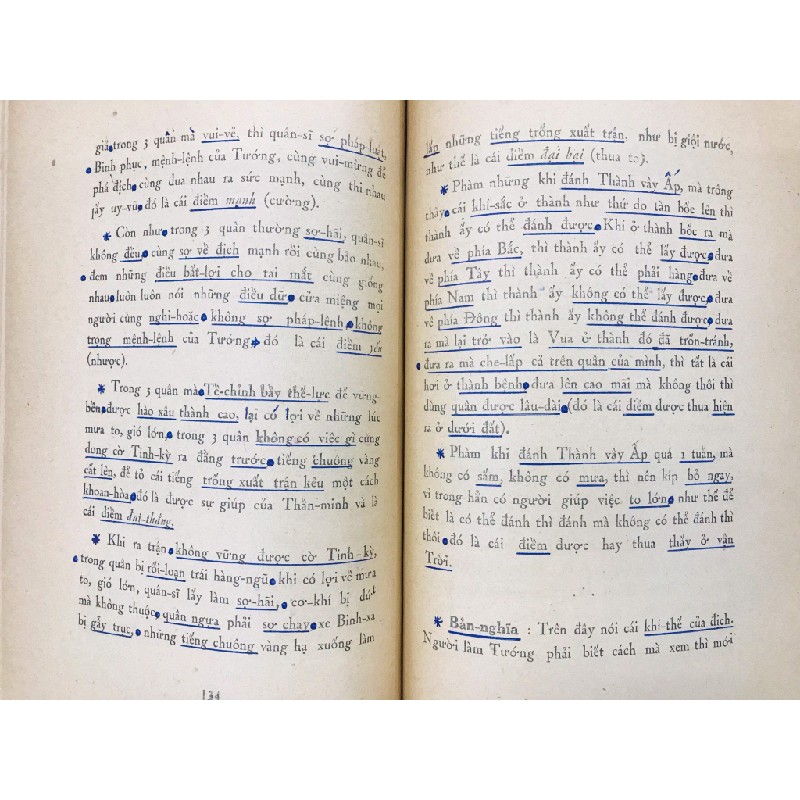 giả, trong 3 quân mà vui-vẻ, thì quân-sĩ sợ pháp-luật,
Binh phục, mệnh-lệnh của Tướng, cùng vui-mừng để
phá địch, cùng đua nhau ra sức mạnh, cùng thi nhau
lấy uy-vũ, đó là cái điềm mạnh (cường).
* Còn như, trong 3 quân thường sợ-hãi, quân-sĩ
không đều, cùng sợ về địch mạnh rồi cùng bảo nhau,
đem những điều bất-lợi cho tai mắt cùng giống
nhau, luôn luôn nói những điều dữ, cửa miệng mọi
người cùng nghi-hoặc, không sợ pháp-lệnh, không
trọng mệnh-lệnh của Tướng, đó là cái điềm yếu
(nhược).
* Trong 3 quân mà Tề-chỉnh bầy thế-lực để vững-
bền, được hào sâu thành cao, lại cố lợi về những lúc
mưa to, gió lớn, trong 3 quân không có việc gì cùng
dung cờ Tinh-kỳ ra đằng trước, tiếng chuông vàng
cất lên, để tỏ cái tiếng trống xuất trận kêu một cách
khoan-hòa, đó là được sự giúp của Thần-minh và là
cái điềm đại-thắng.
* Khi ra trận, không vững được cờ Tinh-kỳ,
trong quân bị rối-loạn trái hàng-ngũ, khi có lợi về mưa
to, gió lớn, quân-sĩ lấy làm sợ-hãi, cơ-khí bị đứt
mà không thuộc, quân ngựa phải sợ chạy, xe Binh-xa
bị gẫy trục, những tiếng chuông vàng hạ xuống làm
134
lấn những tiếng trống xuất trận, như bị giội nước,
như thế là cái điềm đại bại (thua to).
* Phàm những khi đánh Thành vây Ấp, mà trông
thấy, cái khí-sắc ở thành như thứ do tàn bốc lên thì
thành ấy có thể đánh được. Khí ở thành bốc ra mà
đưa về phía Bắc, thì thành ấy có thể lấy được, đưa
về phía Tây thì thành ấy có thể phải hàng, đưa về
phía Nam thì thành ấy không có thể lấy được, đưa
về phía Đông thì thành ấy không thể đánh được, đưa
ra mà lại trở vào là Vua ở thành đó đã trốn-tránh,
đưa ra mà che-lấp cả trên quân của mình, thì tất là cái
hơi ở thành bệnh, đưa lên cao mãi mà không thôi thì
dùng quân được lâu-dài, (đó là cái điềm được thua hiện
ra ở dưới đất).
* Phàm khi đánh Thành vây Ấp quá 1 tuần, mà
không có sấm, không có mưa, thì nên kíp bỏ ngay,
vì trong hẳn có người giúp việc to lớn, như thế để
biết là có thể đánh thì đánh mà không có thể đánh thì
thôi, đó là cái điềm được hay thua thấy ở vận
Trời.
* Bản-nghĩa : Trên đây nói cái khí-thế của địch.
Người làm Tướng phải biết cách mà xem thì mới